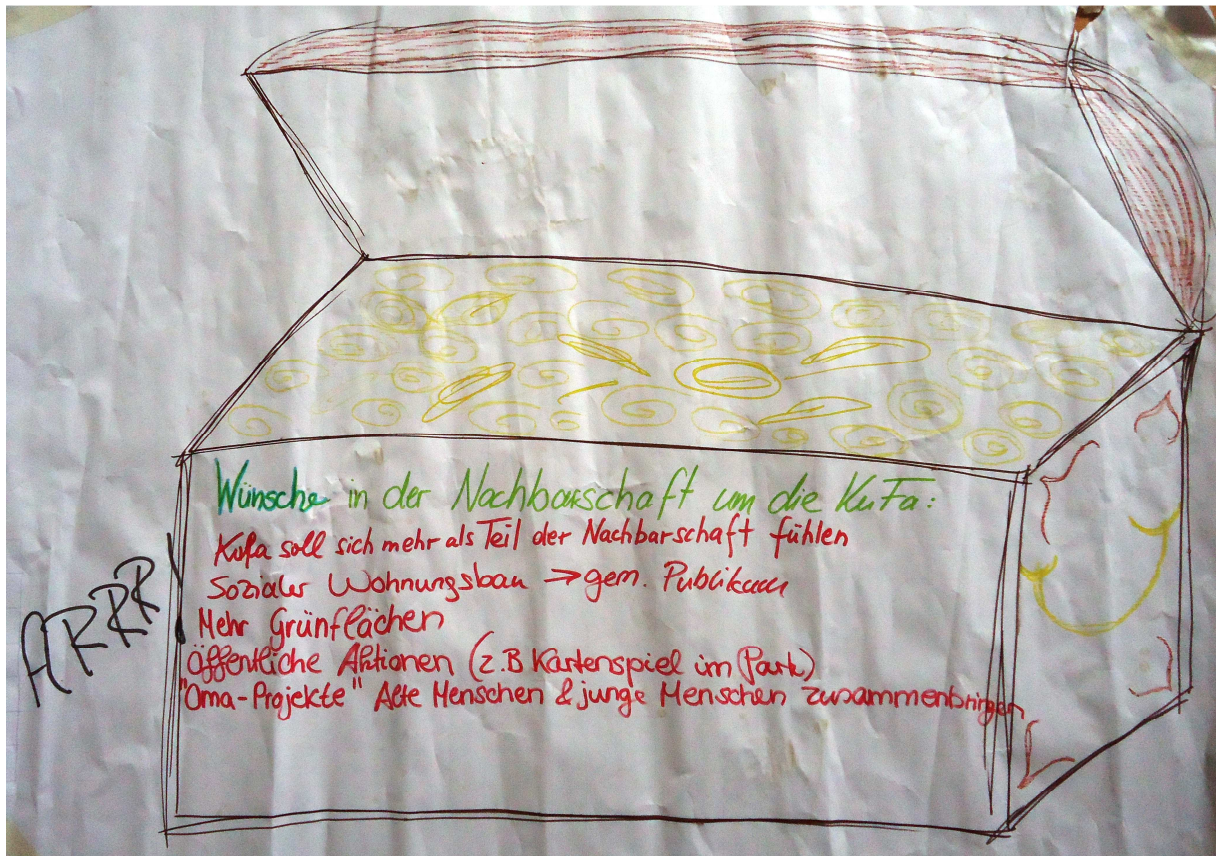 Wünsche in der Nachbarschaft um die KuFa:
Kufa soll sich mehr als Teil der Nachbarschaft fühlen
Sozialer Wohnungsbau → gem. Publikum
Mehr Grünflächen
Öffentliche Aktionen (z.B Kartenspiel im Park)
"Oma-Projekte" Alte Menschen & junge Menschen zusammenbringen
ARRR!